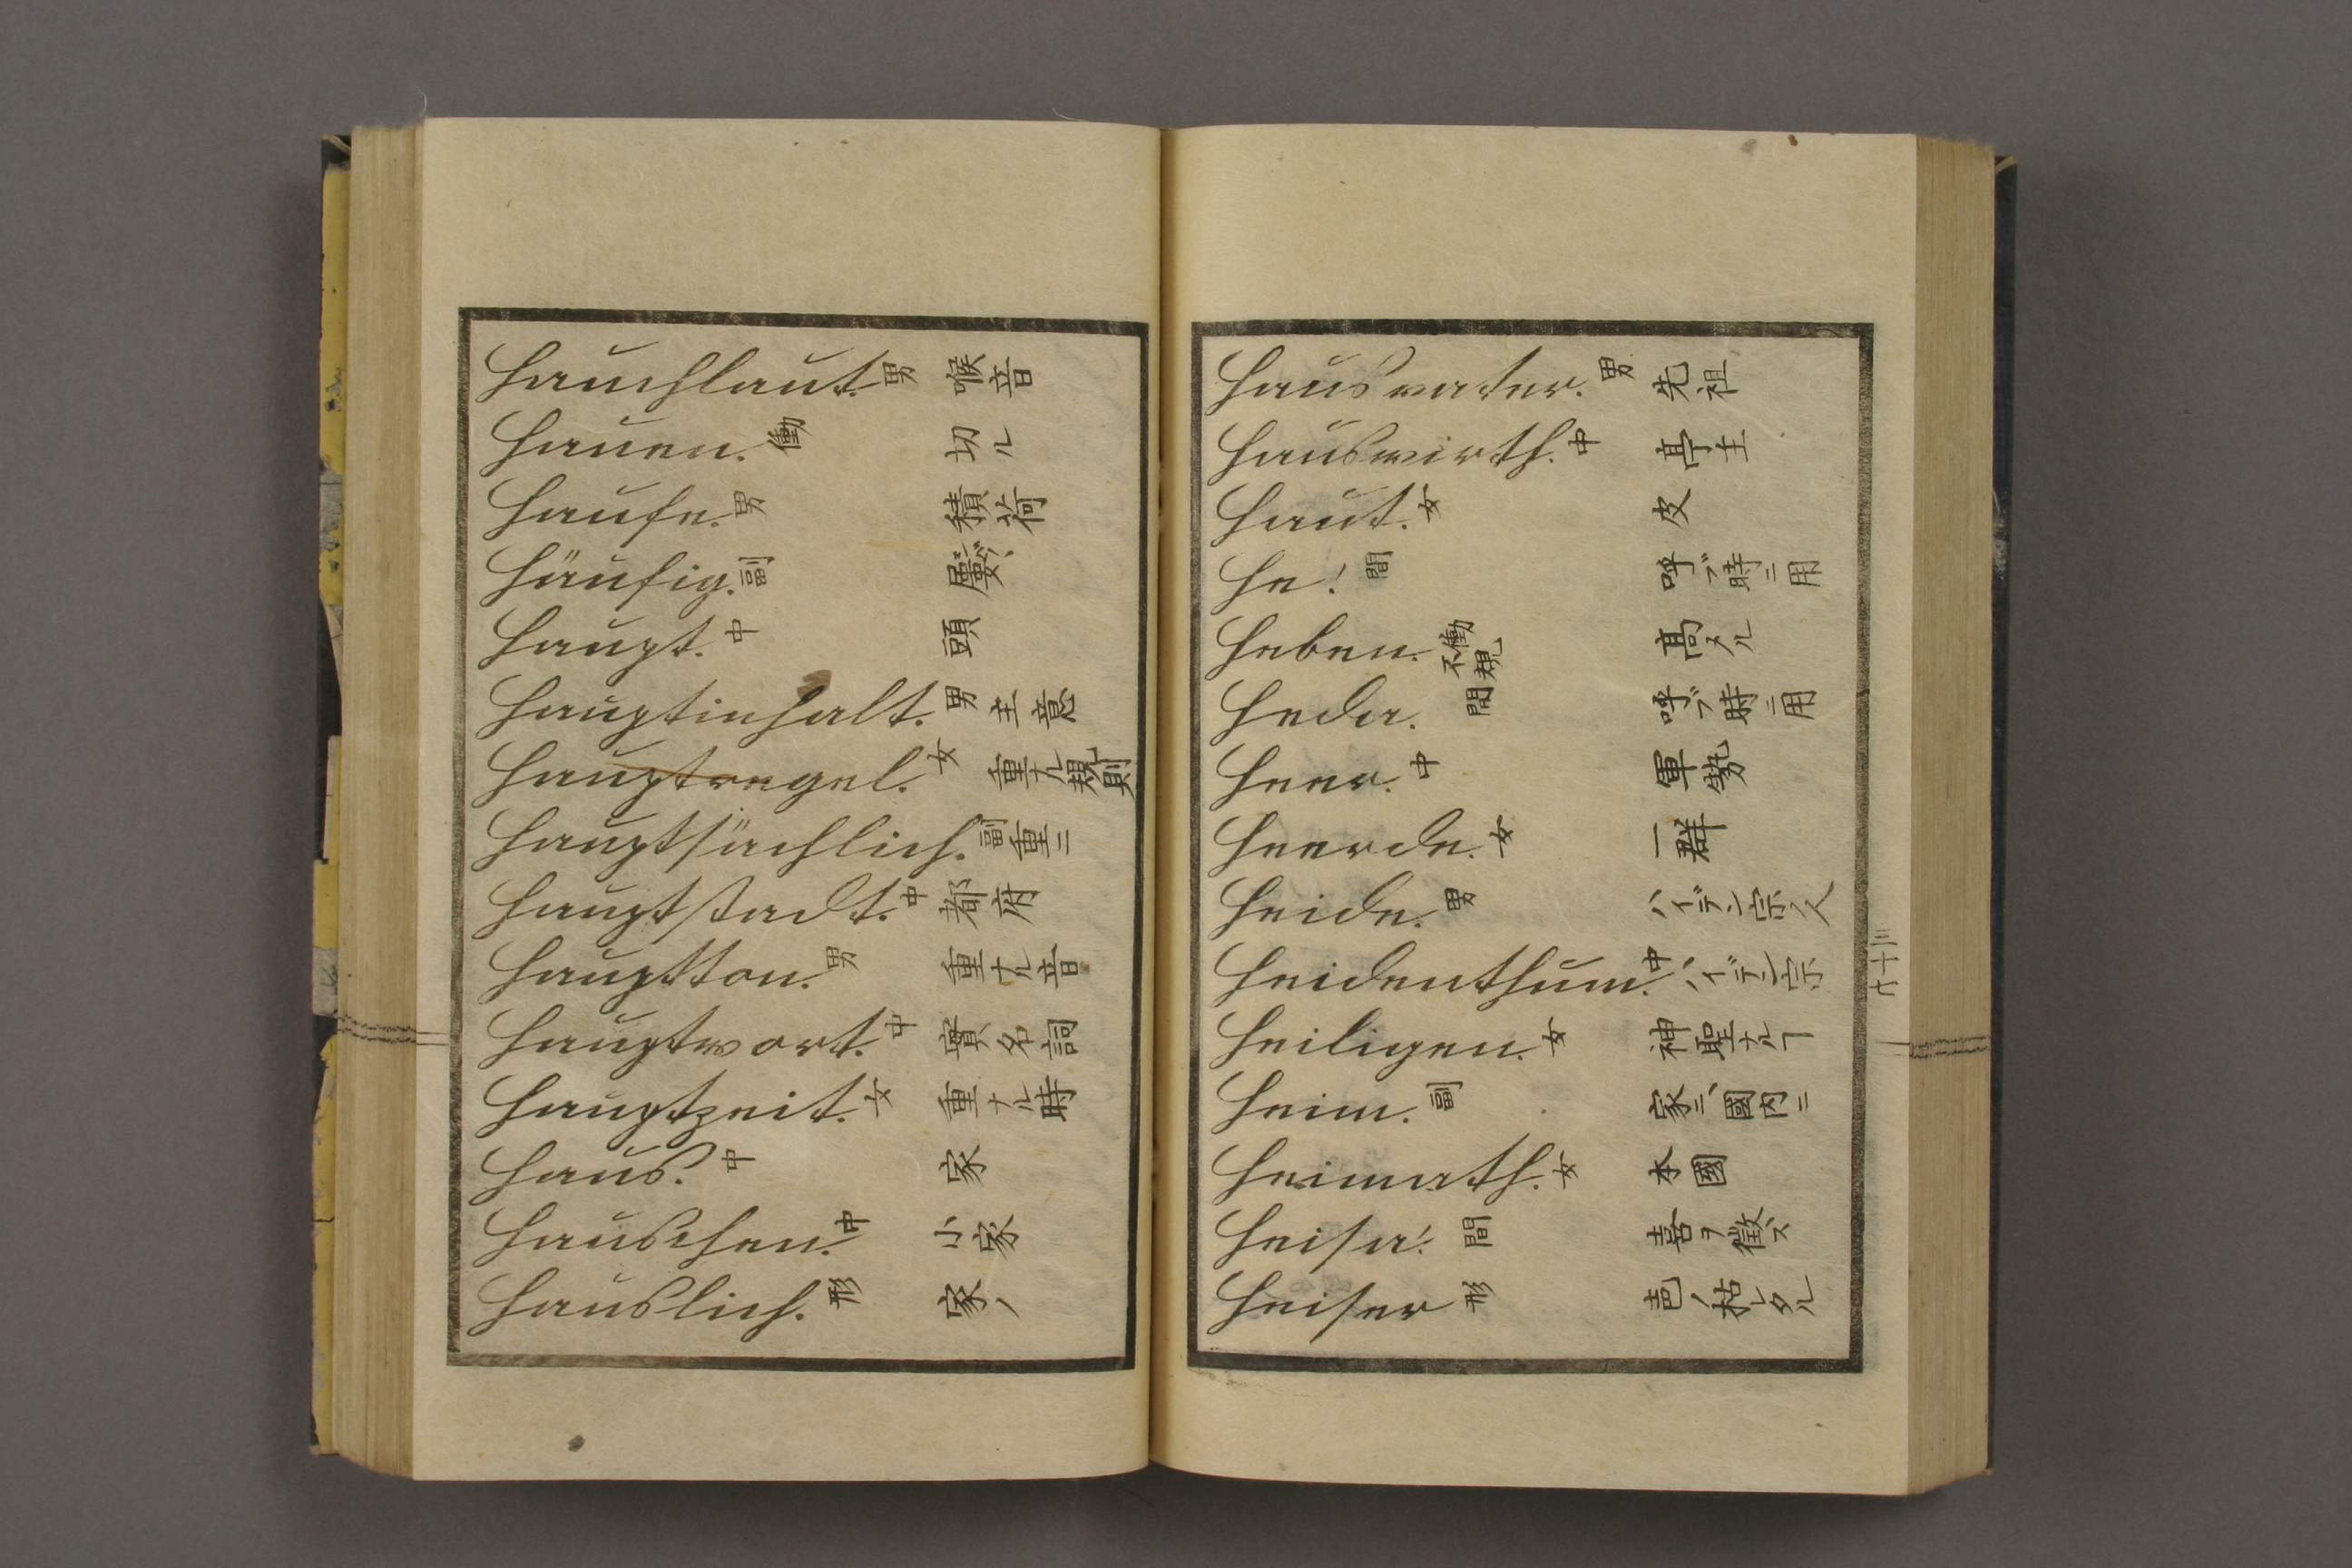 Hauchlaut. 男 喉音
Hauen. 働 切ル
Haufe. 男 積荷
Häufig. 副 屢〻
Haupt. 中 頭
Hauptinhalt. 男 主意
Hauptregel. 女 重ナル規則
Hauptsächlich. 副 重ニ
Hauptstadt. 中 都府
Hauptton. 男 重ナル音
Hauptwort. 中 實名詞
Hauptzeit. 女 重ナル時
Haus. 中 家
Hauschen. 中 小家
Hauslich. 形 家ノ
Hausvater. 男 先祖
Hauswirth. 中 亭主
Haut. 女 皮
He! 間 呼ブ時ニ用
Heben. 働不規 髙メル
Heda. 間 呼ブ時ニ用
Heer. 中 軍勢
Heerde. 女 一群
Heide. 男 ハイデン宗ノ人
Heidenthum. 中 ハイデン宗
Heiligen. 女 神聖ナルヿ
Heim. 副 家ニ、國内ニ
Heimath. 女 本國
Heisa! 間 喜ヲ徵ス
Heiser 形 ノ枯レタル